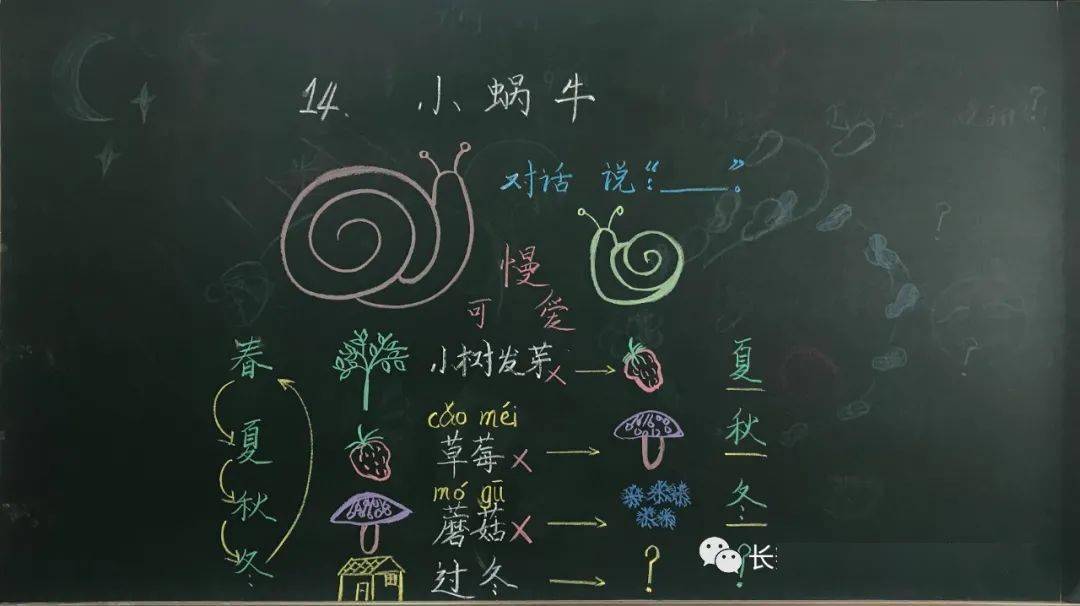 14. 小蜗牛
对话 说:“____”。
慢
可爱
春 小树发芽 × 夏
cǎo méi
夏 草莓 × 秋
mó gū
秋 蘑菇 × 冬
冬 过冬 ? ?
长